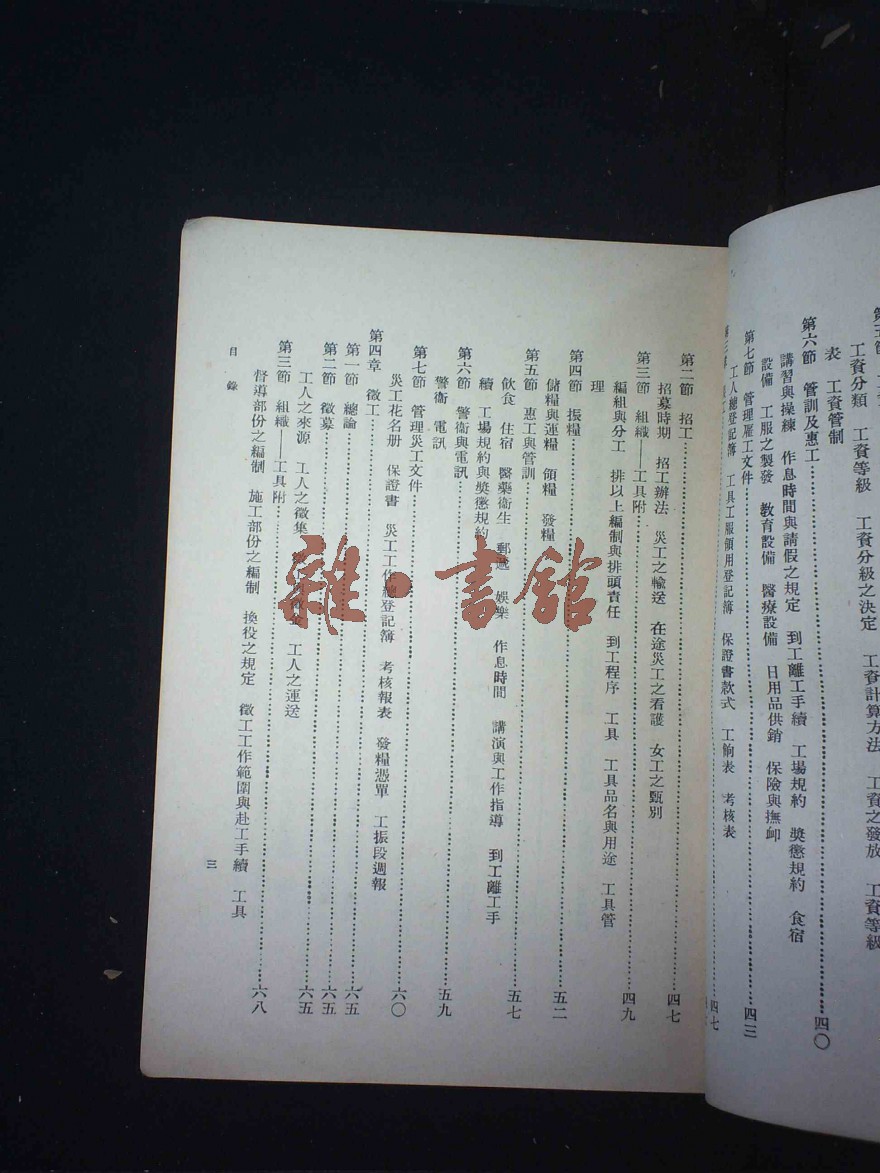 工資分類 工資等級 工資分級之決定 工資計算方法 工資之發放 工資等級
表 工資管制
第六節 管訓及惠工……四〇
講習與操練 作息時間與請假之規定 到工離工手續 工場規約 獎懲規約 食宿
設備 工服之製發 教育設備 醫療設備 日用品供銷 保險與撫卹
第七節 管理雇工文件……四三
工人總登記簿 工具工服領用登記簿 保證書款式 工餉表 考核表
四七
第二節 招工……四七
招募時期 招工辦法 災工之輸送 在途災工之看護 女工之甄別
第三節 組織——工具附……四九
編組與分工 排以上編制與排頭責任 到工程序 工具 工具品名與用途 工具管
理
第四節 振糧……五二
儲糧與運糧 領糧 發糧
第五節 惠工與管訓……五七
飲食 住宿 醫藥衞生 郵遞 娛樂 作息時間 講演與工作指導 到工離工手
續 工場規約與獎懲規約
第六節 警衞與電訊……五九
警衞 電訊
第七節 管理災工文件……六〇
災工花名册 保證書 災工工作總登記簿 考核報表 發糧憑單 工振段週報
第四章 徵工……六五
第一節 總論……六五
第二節 徵募……六五
工人之來源 工人之徵集 工人之運送
第三節 組織——工具附……六八
督導部份之編制 施工部份之編制 換役之規定 徵工工作範圍與赴工手續 工具
目錄 三
雜·書館